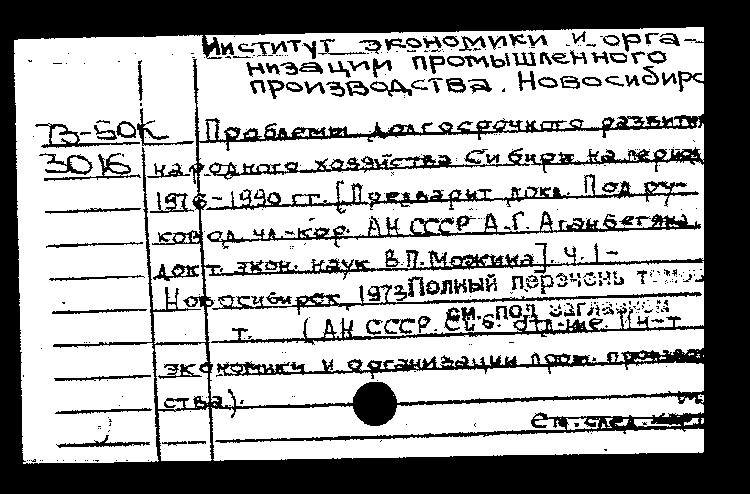 Институт экономики и орга-
низации промышленного
производства. Новосибирс
В-50К Проблемы долгосрочного развития
3016 народного хозяйства Сибири на период
1976-1990 гг. [Предварит. докл. Под ру-
ковод. чл.-кор. АН СССР А.Г. Аганбегяна,
докт. экон. наук В.П. Можина]. Ч. 1-
Новосибирск, 1973 Полный перечень томов
см. под заглавием
т. (АН СССР. Сиб. отд-ние. Ин-т
экономики и организации пром. производ
ства).
См. след. карт